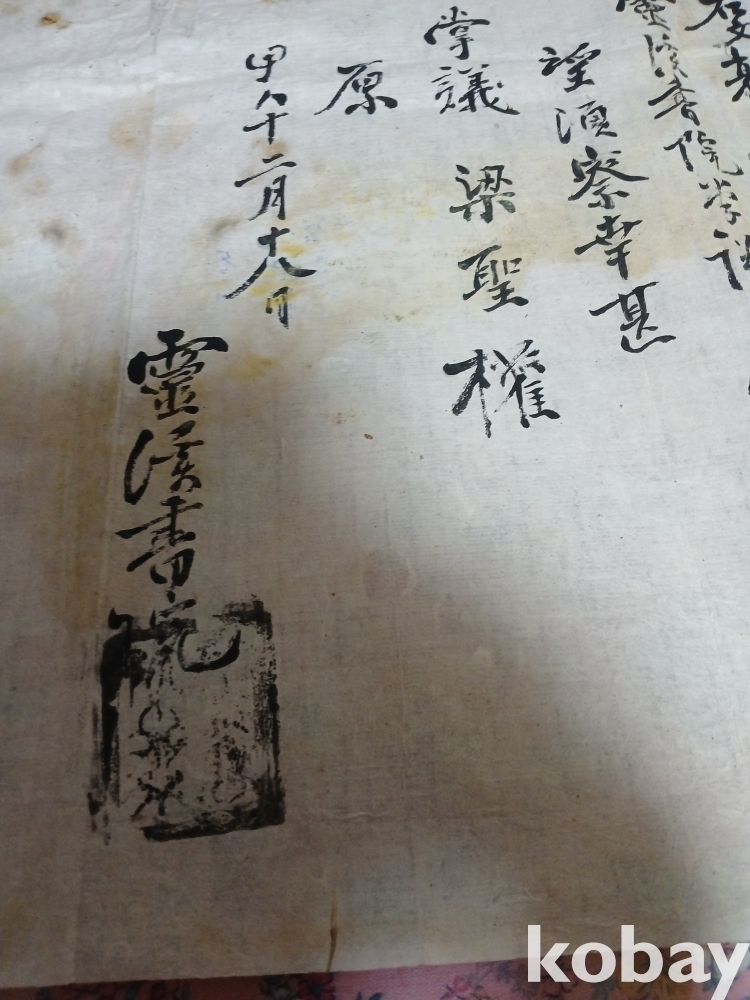 靈溪書院掌議
望須察幸甚
掌議 梁聖權
原
甲八十二月十八日
靈溪書院
kobay